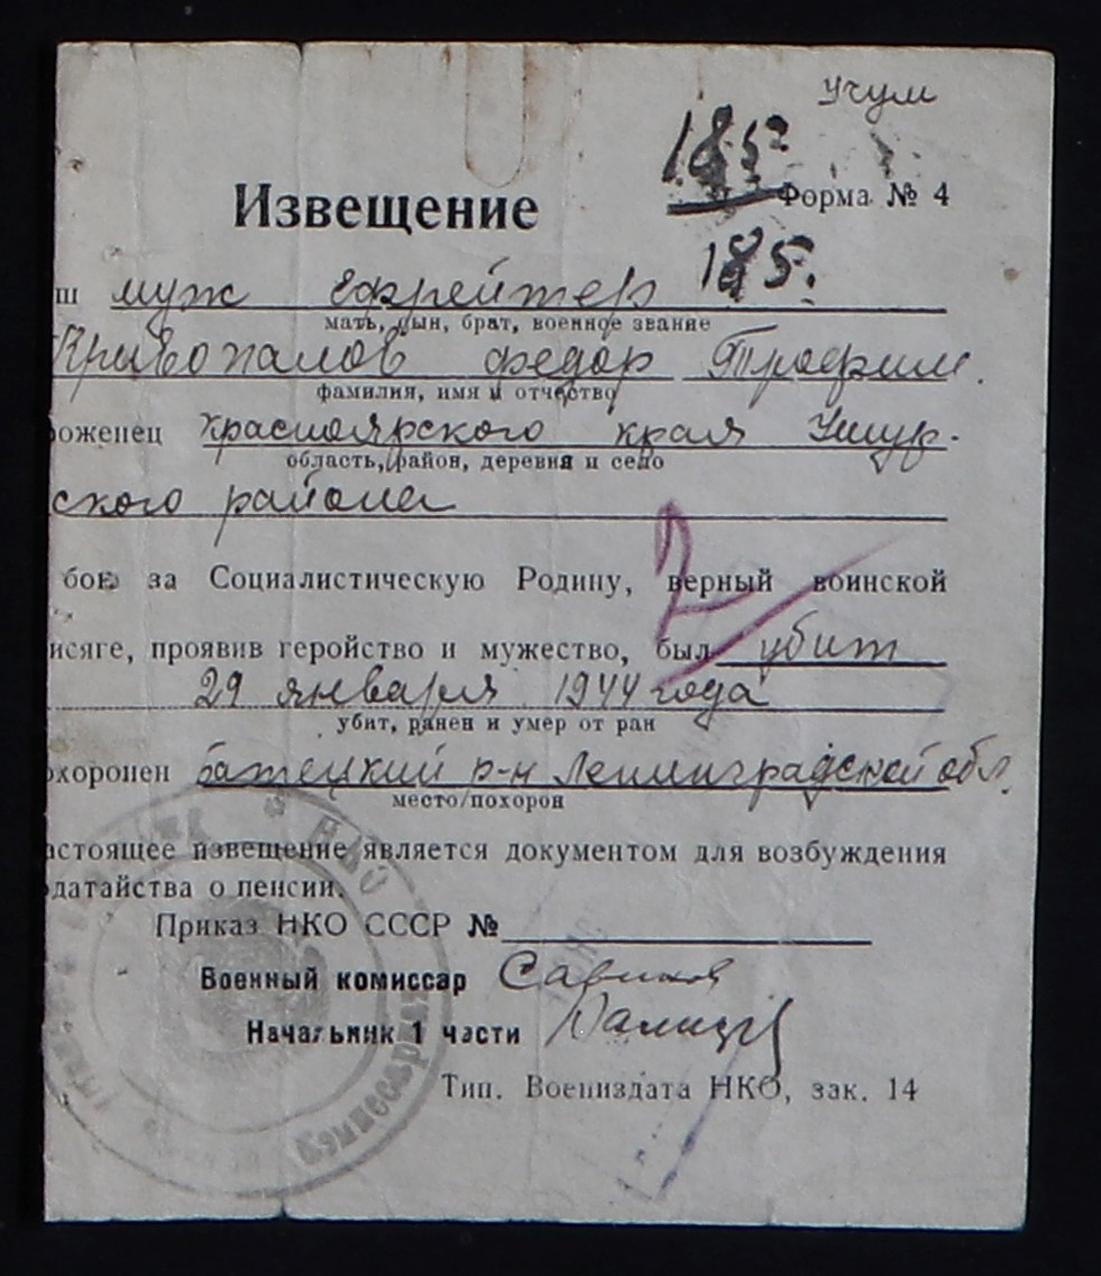 Учум
185
Форма № 4
Извещение
185.
ш муж ефрейтер
мать, сын, брат, военное звание
Кривопалов Федор Трофим.
фамилия, имя и отчество
роженец Красноярского края Ужур-
область, район, деревня и село
ского района
2
бою за Социалистическую Родину, верный воинской
исяге, проявив геройство и мужество, был убит
29 января 1944 года
убит, ранен и умер от ран
охоронен Батецкий р-н Ленинградской обл.
место похорон
астоящее извещение является документом для возбуждения
одатайства о пенсии.
Приказ НКО СССР №
Военный комиссар
Начальник 1 части
Тип. Воениздата НКО, зак. 14
НКО
комиссариат